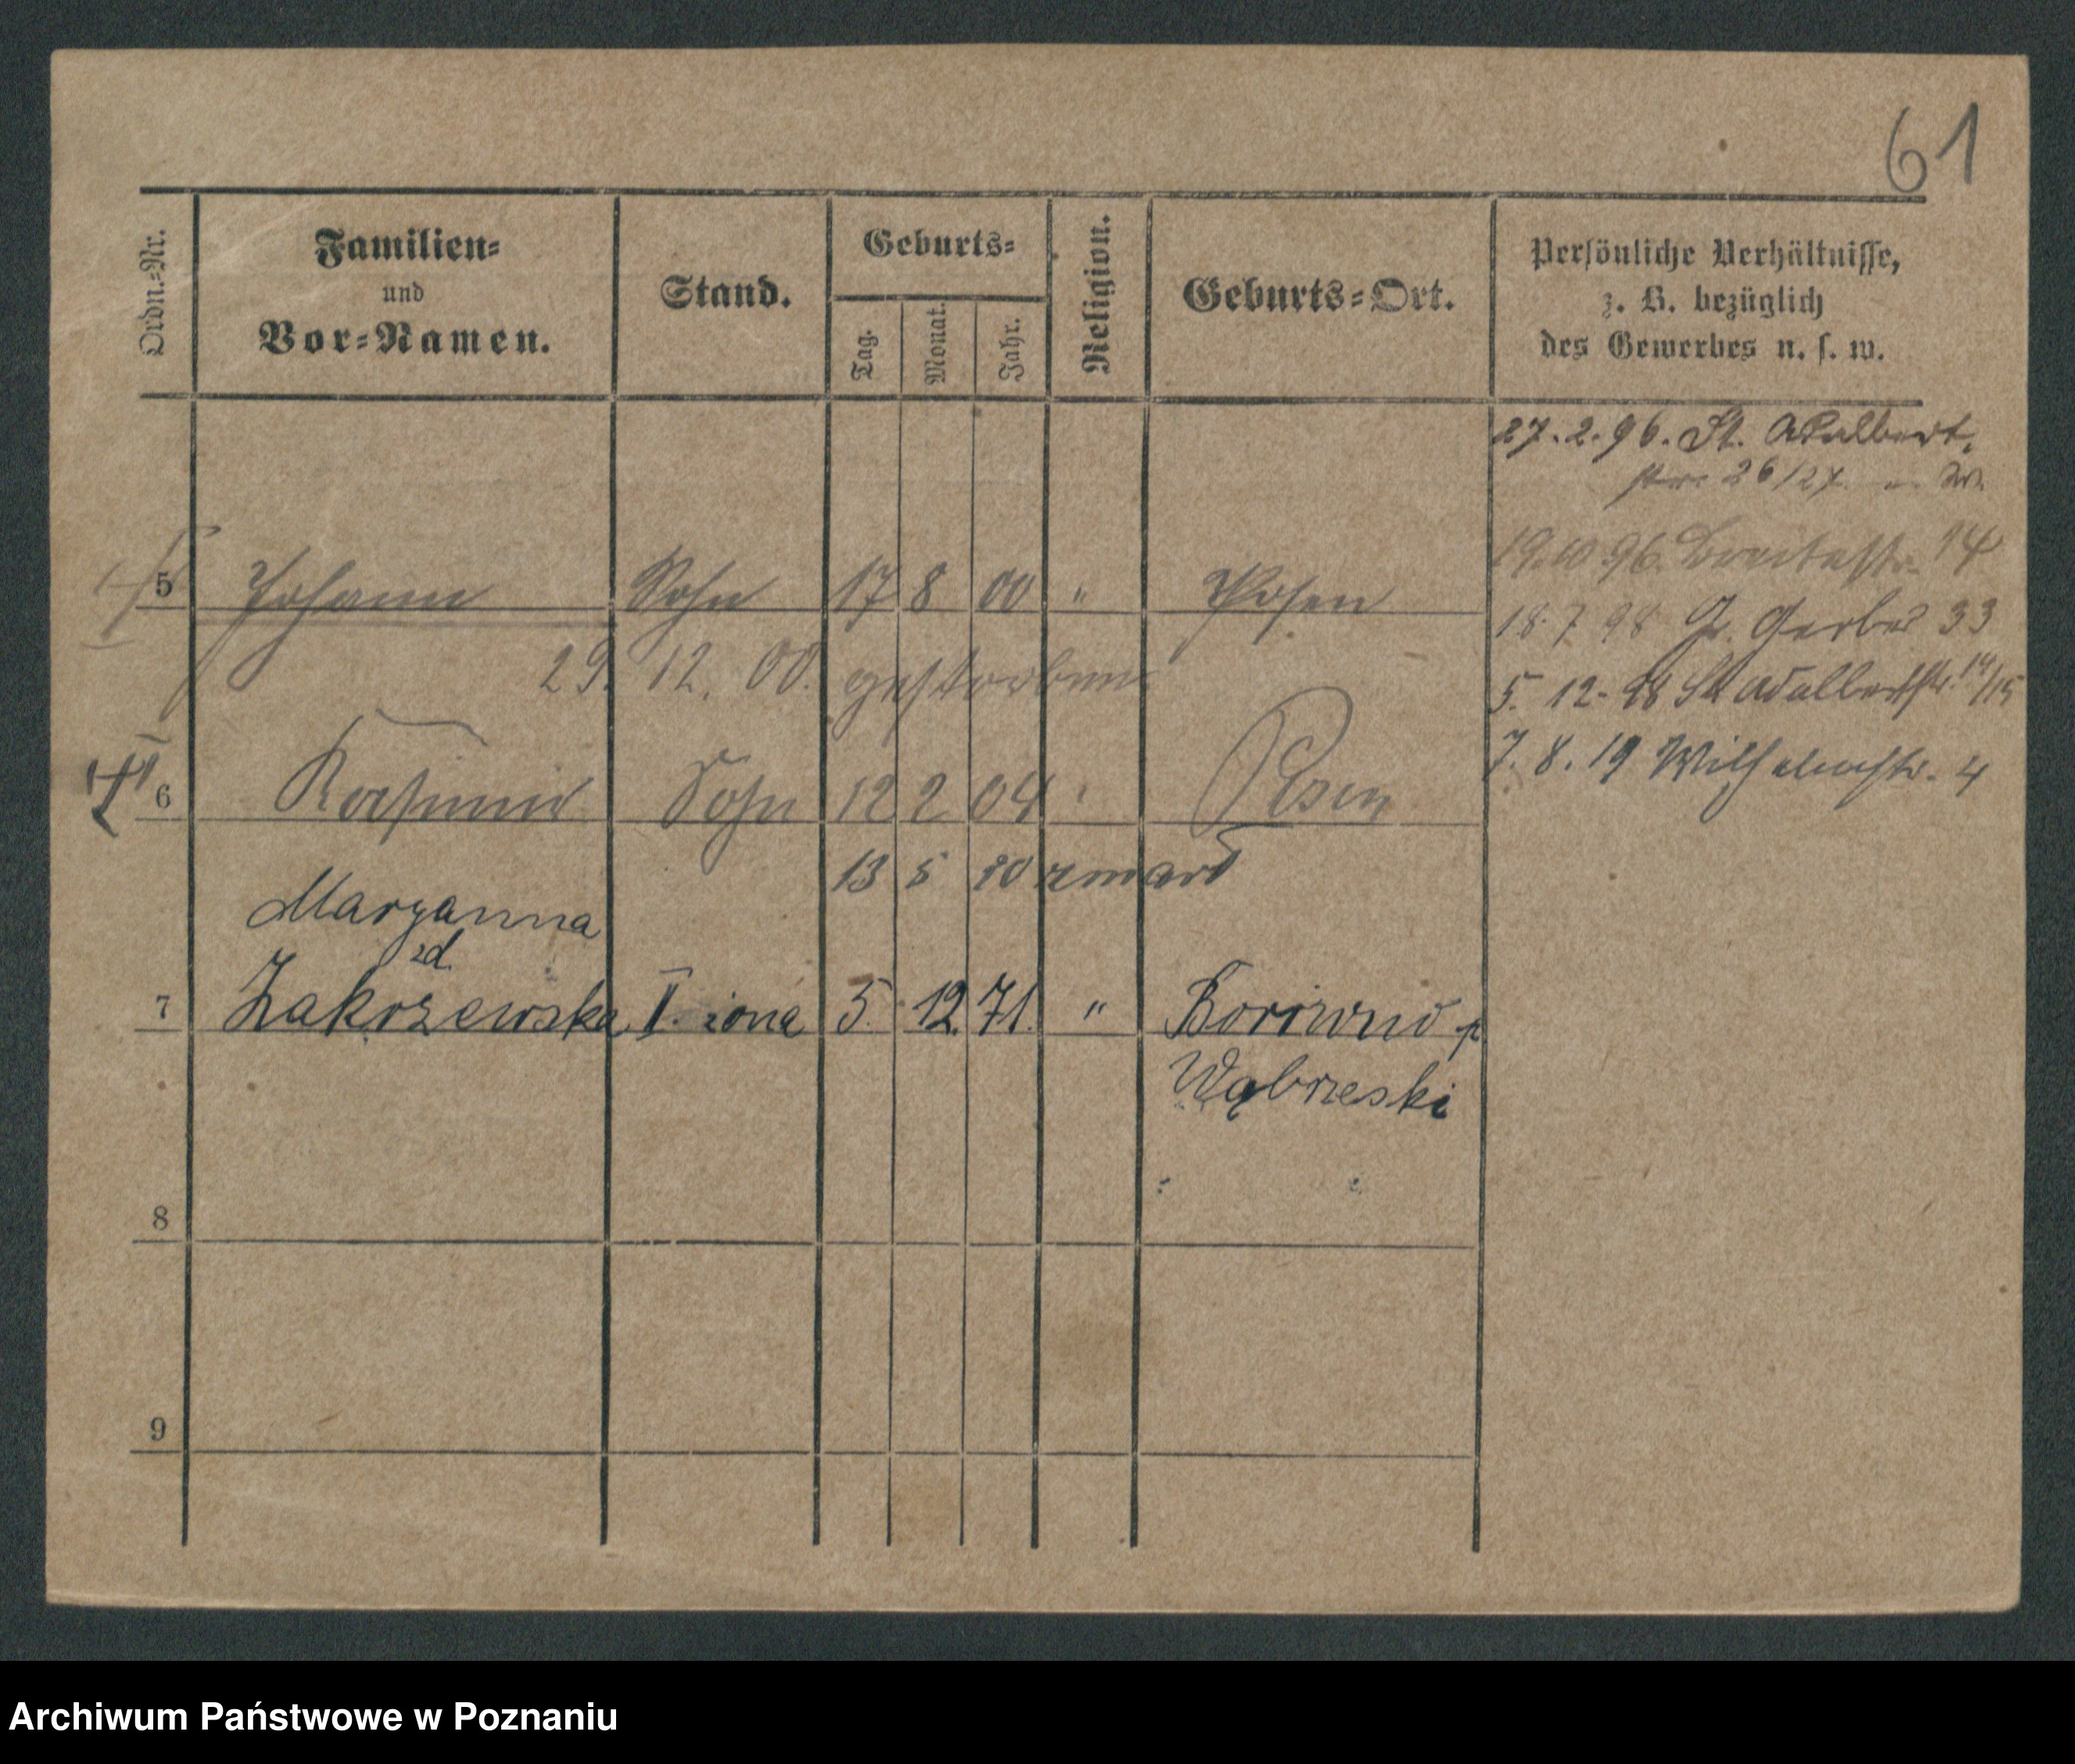 61
Ordn.-Nr.
Familien-
und
Vor-Namen.
Stand.
Geburts-
Tag.
Monat.
Jahr.
Religion.
Geburts-Ort.
Persönliche Verhältnisse,
z. B. bezüglich
des Gewerbes u. s. w.
27. 2. 96. St. Adalbert-
str. 26/27.
19. 10 96. Breitestr. 14
5 Johann Sohn 17 8 00 " Posen
18. 7 98 Gr. Gerber 33
29. 12. 00. gestorben
5. 12. 98 St Adalbertstr. 14/15
7. 8. 19 Wilhelmstr. 4
6 Kasimir Sohn 12 2 04 " Posen
13 5 20 zmarł
Maryanna
zd.
7 Zakrzewska II. żona 5. 12. 71. " p
Wąbrzeski
8
9
Archiwum Państwowe w Poznaniu